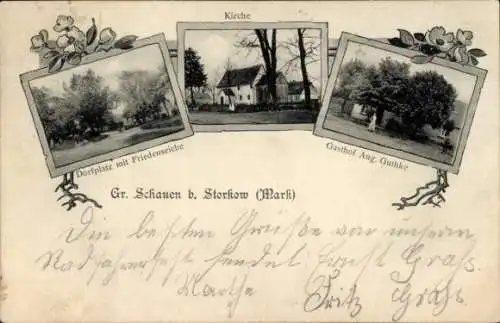 Kirche
Dorfplatz mit Friedenseiche
Gasthof Aug. Guthke
Gr. Schauen b. Storkow (Mark)
Die besten Grüße von unserm
Radfahrerfest sendet Ernst Graß
Martha Fritz Graß